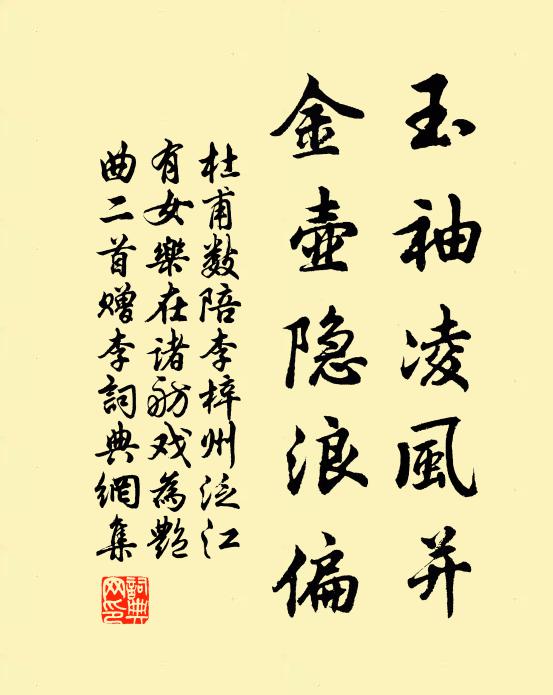 玉袖凌風并
金壺隐浪偏
杜甫數陪李梓州泛江
有女樂在诸舫戏為艷
曲二首赠李詞典網集
詞典网印